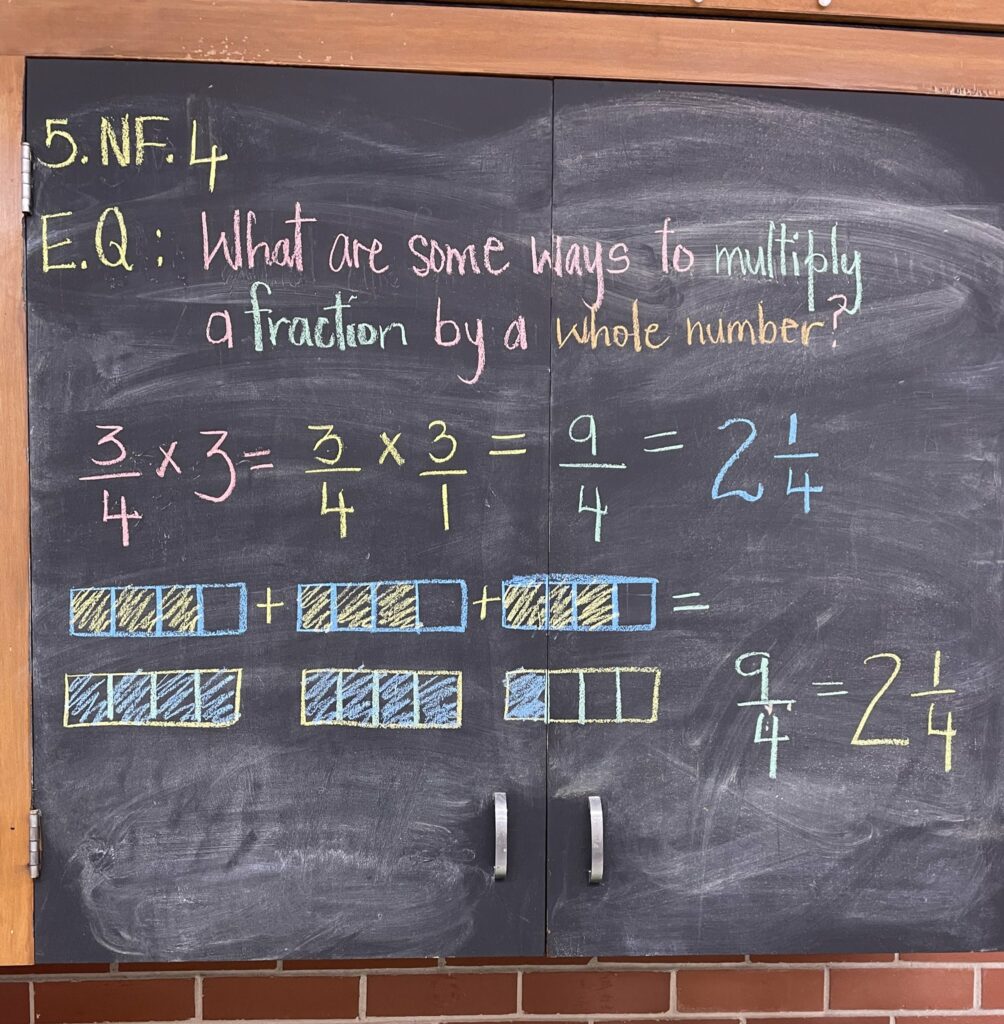 5.NF.4
E.Q: What are some ways to multiply
a fraction by a whole number?
3/4 x 3 = 3/4 x 3/1 = 9/4 = 2 1/4
+ + =
9/4 = 2 1/4